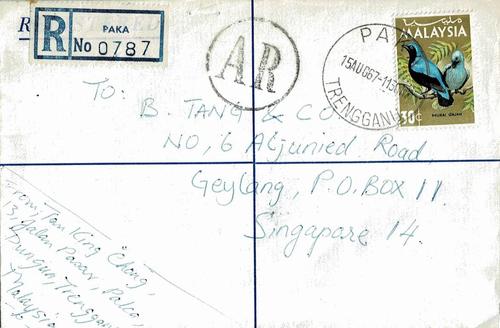 R
R
PAKA
No 0787
AR
PA
15AUG67-11
TRENGGANU
مليسيا
MALAYSIA
30c
MURAI GAJAH
To:
B. TANG & CO
NO, 6 Aljunied Road,
Geylang, P.O.BOX 11
Singapore 14.
From, Tan King Chong,
13, Jalan Pasar, Paka,
Dungun, Trengganu
Malaysia